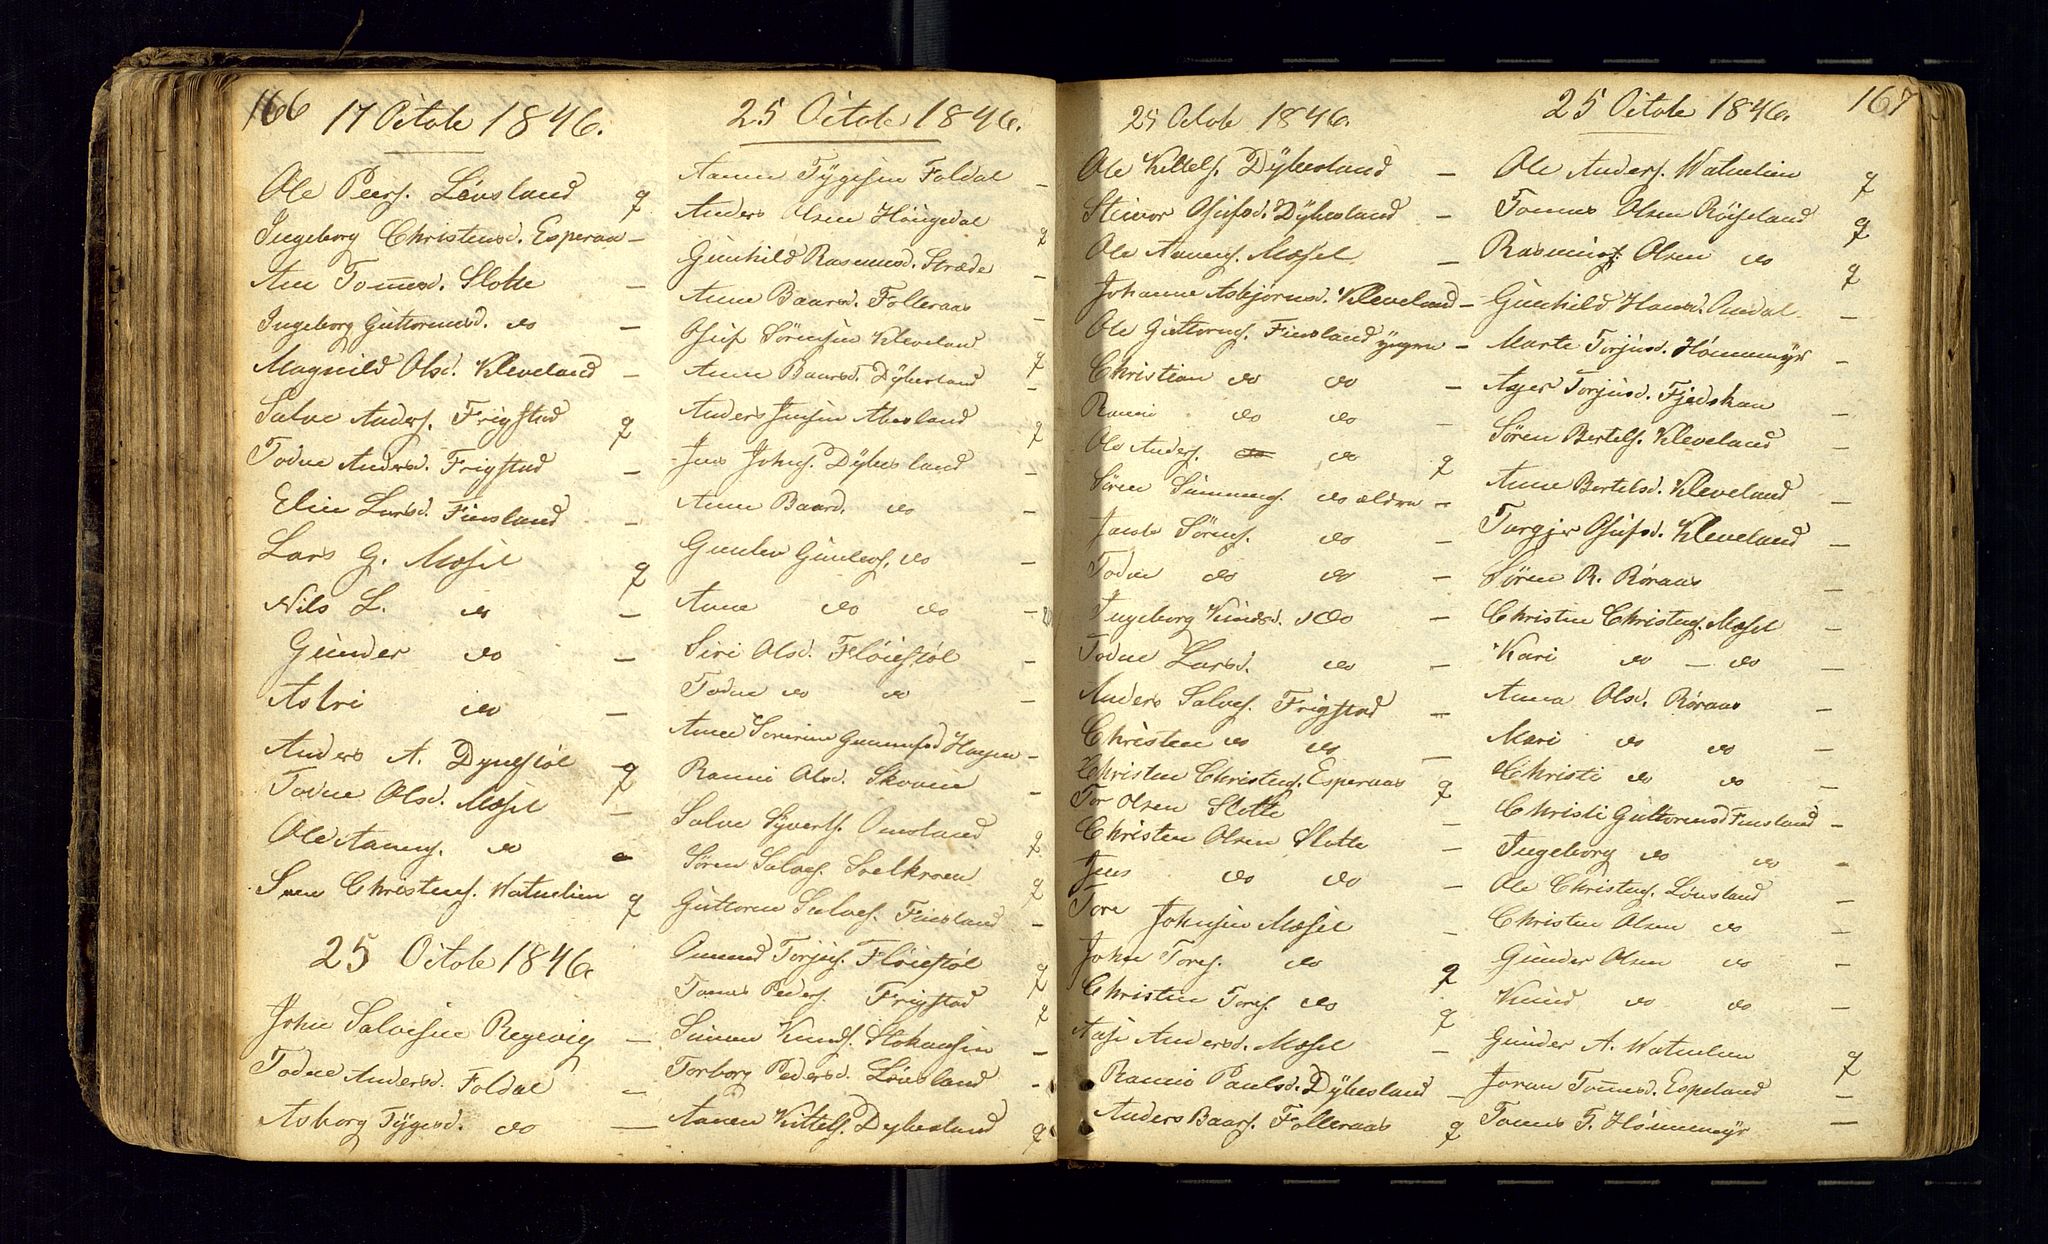 166
17 Octobr 1846.
Ole Peers. Lønsland q
Ingeborg Christensd. Esperaa –
Ane Tom̅esd. Slotte –
Ingeborg Guttormsd. do –
Magnild Olsd. Kleveland –
Salve Anders. Frigstad q
Todne Andersd. Frigstad –
Elen Larsd. Finsland –
Lars G. Mæsel q
Nils L. do –
Gunder do –
Astri do –
Anders A. Dynestøl q
Todne Olsd. Mæsel –
Ole Aanens. do –
Sven Christens. Watnelien q
25 Octobr 1846.
John Salvesen Regevig –
Todne Andersd. Foldal –
Asborg Tygesd. do –
25 Octobr 1846.
Aanen Tygesen Foldal –
Anders Olsen Høngedal q
Gunhild Rasmusd. Stræde –
Anne Baarsd. Folleraas –
Osuf Sørensen Kleveland q
Anne Baarsd. Dybesland –
Anders Jensen Abesland q
Jens Johns. Dybesland –
Anne Baard. do –
Gunlev Gunlevs. do –
Anne do do –
Siri Olsd. Fløiestøl –
Todne do do –
Anne Sererine Gunnufsd Haagen –
Ranni Olsd. Skoven –
Salve Syverts. Omsland q
Søren Salves. Soelkroen q
Guttorm Salves. Finsland –
Omund Torjus. Fløiestøl q
Tom̅es Peders. Frigstad q
Simen Knuds. Stokansen –
Torborg Pedersd. Lønsland –
Aanen Kittels. Dybesland q
25 Octob 1846.
Ole Kittels. Dybesland –
Steinor Osufsd. Dybesland –
Ole Aanens. Mæsel –
Johanne Asbjornsd. Kleveland –
Ole Guttorms. Finsland yngre –
Christian do do –
Ranni do do –
Ole Anders. do q
Søren Simmons. do ældre –
Jacob Sørens. do –
Todne do do –
Ingeborg Knudsd. do –
Todne Larsd. do –
Anders Salves. Frigstad –
Christen do do –
Christen Christens. Esperaas q
Tor Olsen Slotte –
Christen Olsen Slotte –
Jens do do –
Tore Johnsen Mæsel –
John Tores. do q
Christen Tores. do q
Aase Andersd. Mæsel –
Ranni Paulsd. Dybesland –
Anders Baars. Folleraas q
167
25 Octobr 1846.
Ole Anders. Watnelien q
Tom̅es Olsen Røiseland q
Rasmus Olsen do q
Gunhild Hansd. Omdal –
Marte Torjusd. Hønnemyr –
Ager Torjusd. Fjedskan –
Søren Bertels. Kleveland –
Anne Bertelsd. Kleveland –
Turgjer Osufsd. Kleveland –
Søren R. Røraas –
Christen Christens. Mæsel –
Kari do – do –
Anna Olsd. Røraas –
Mari do do –
Christi do do –
Christi Guttormsd Finsland –
Ingeborg do do –
Ole Christens. Lønsland –
Christen Olsen do –
Gunder Olsen do –
Knud do do –
Gunder A. Watnelien q
Joran Tom̅esd. Espeland –
Tom̅es T. Hønnemyr –